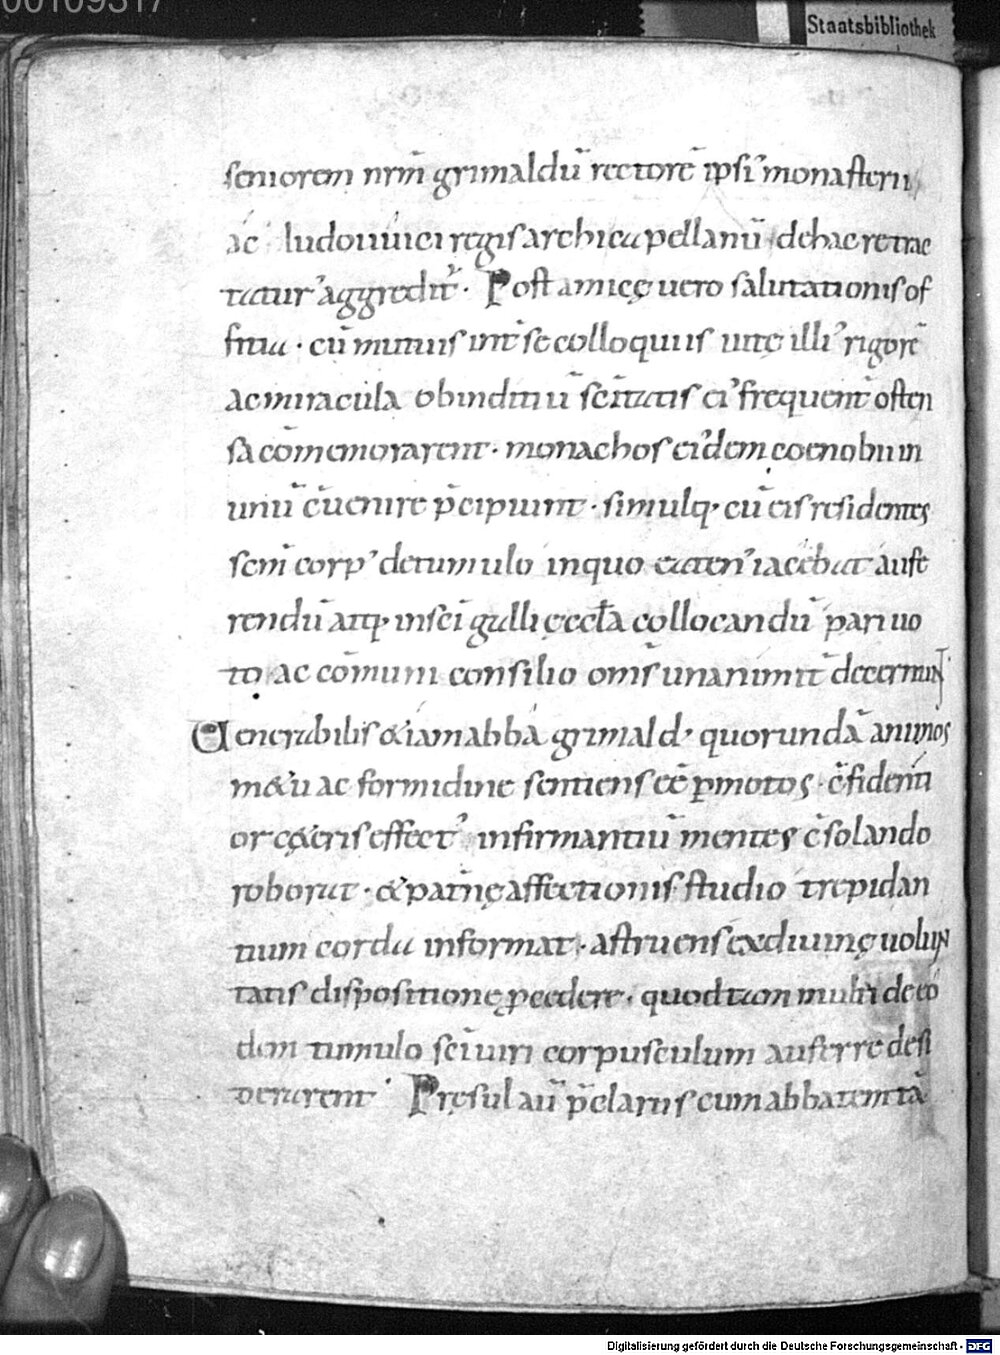 00109317
Staatsbibliothek
seniorem nr̄m grimaldū rectorē ipsi᾽ monasterii
ac ludouuici regis archicapellanū de hac re trac
tatur᾽ aggredit᷑. Post amicę uero salutationis of
ficia. cū mutuis int̄ se colloquiis uitę illi᾽ rigorē
ac miracula ob inditiū sc̄itatis ei᾽ frequent̄ osten
sa cōmemorarent. monachos ei᾽dem coenobii in
unū c̄uenire p̄cipiunt. simulq; cū eis residentes
sc̄m corp᾽ de tumulo in quo eaten᾽ iacebat aufe
rendū atq; in sc̄i galli ęccła collocandū pari uo
to ac cōmuni consilio om̄s unanimit̄ decernunt.
Uenerabilis & iam abba grimald᾽ quorundā animos
m&u ac formidine sentiens eē p̄motos. c̄fidenti
or cęteris effect᾽ infirmantiū mentes c̄solando
roborat. & pat̄nę affectionis studio trepidan
tium corda informat. astruens ex diuinę uolun
tatis dispositione p̱cedere. quod tam multi de eo
dem tumulo sc̄i uiri corpusculum auferre desi
derarent. Pręsul aū p̄clarus cum abbatem tā
Digitalisierung gefördert durch die Deutsche Forschungsgemeinschaft - DFG